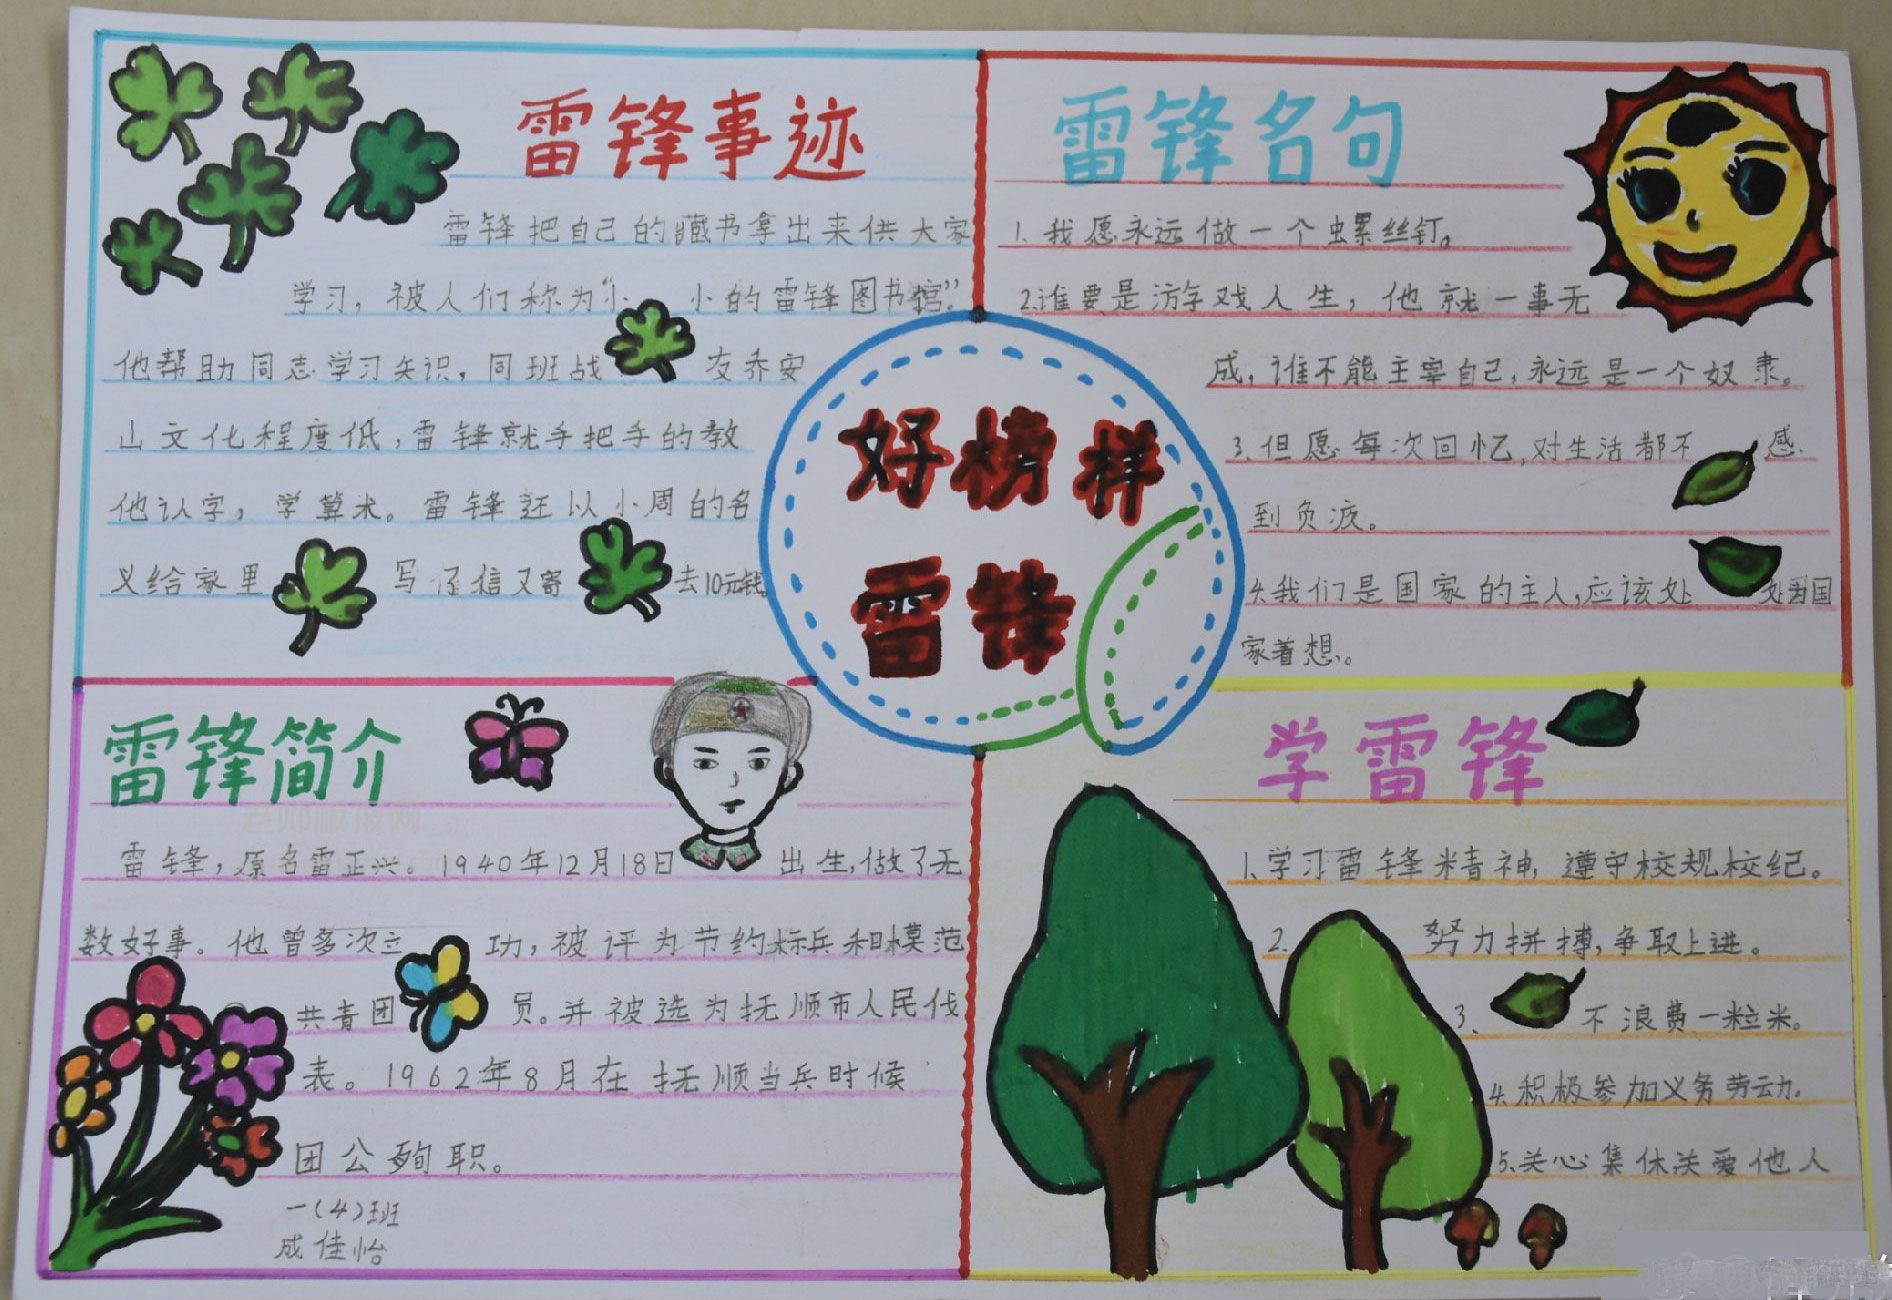 雷锋事迹
雷锋把自己的藏书拿出来供大家
学习，被人们称为“小 小的雷锋图书馆”
他帮助同志学习知识，同班战 友乔安
山文化程度低，雷锋就手把手的教
他认字，学算术。雷锋还以小周的名
义给家里 写 信又寄 去10元钱
雷锋名句
1.我愿永远做一个螺丝钉。
2.谁要是游戏人生，他就一事无
成，谁不能主宰自己，永远是一个奴隶。
3.但愿每次回忆，对生活都不 感
到负疚。
4.我们是国家的主人，应该处 处为国
家着想。
好榜样
雷锋
雷锋简介
雷锋，原名雷正兴。1940年12月18日 出生，做了无
数好事。他曾多次立 功，被评为节约标兵和模范
共青团 员。并被选为抚顺市人民代
表。1962年8月在抚顺当兵时候
因公殉职。
一（4）班
成佳怡
学雷锋
1.学习雷锋精神，遵守校规校纪。
2. 努力拼搏，争取上进。
3、 不浪费一粒米。
4.积极参加义务劳动.
5.关心集体关爱他人
老师板报网